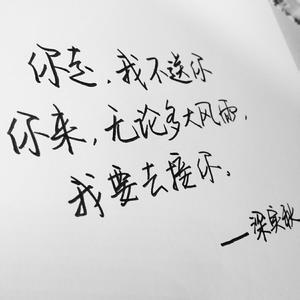 你走，我不送你
你来，无论多大风雨，
我要去接你。
——梁实秋